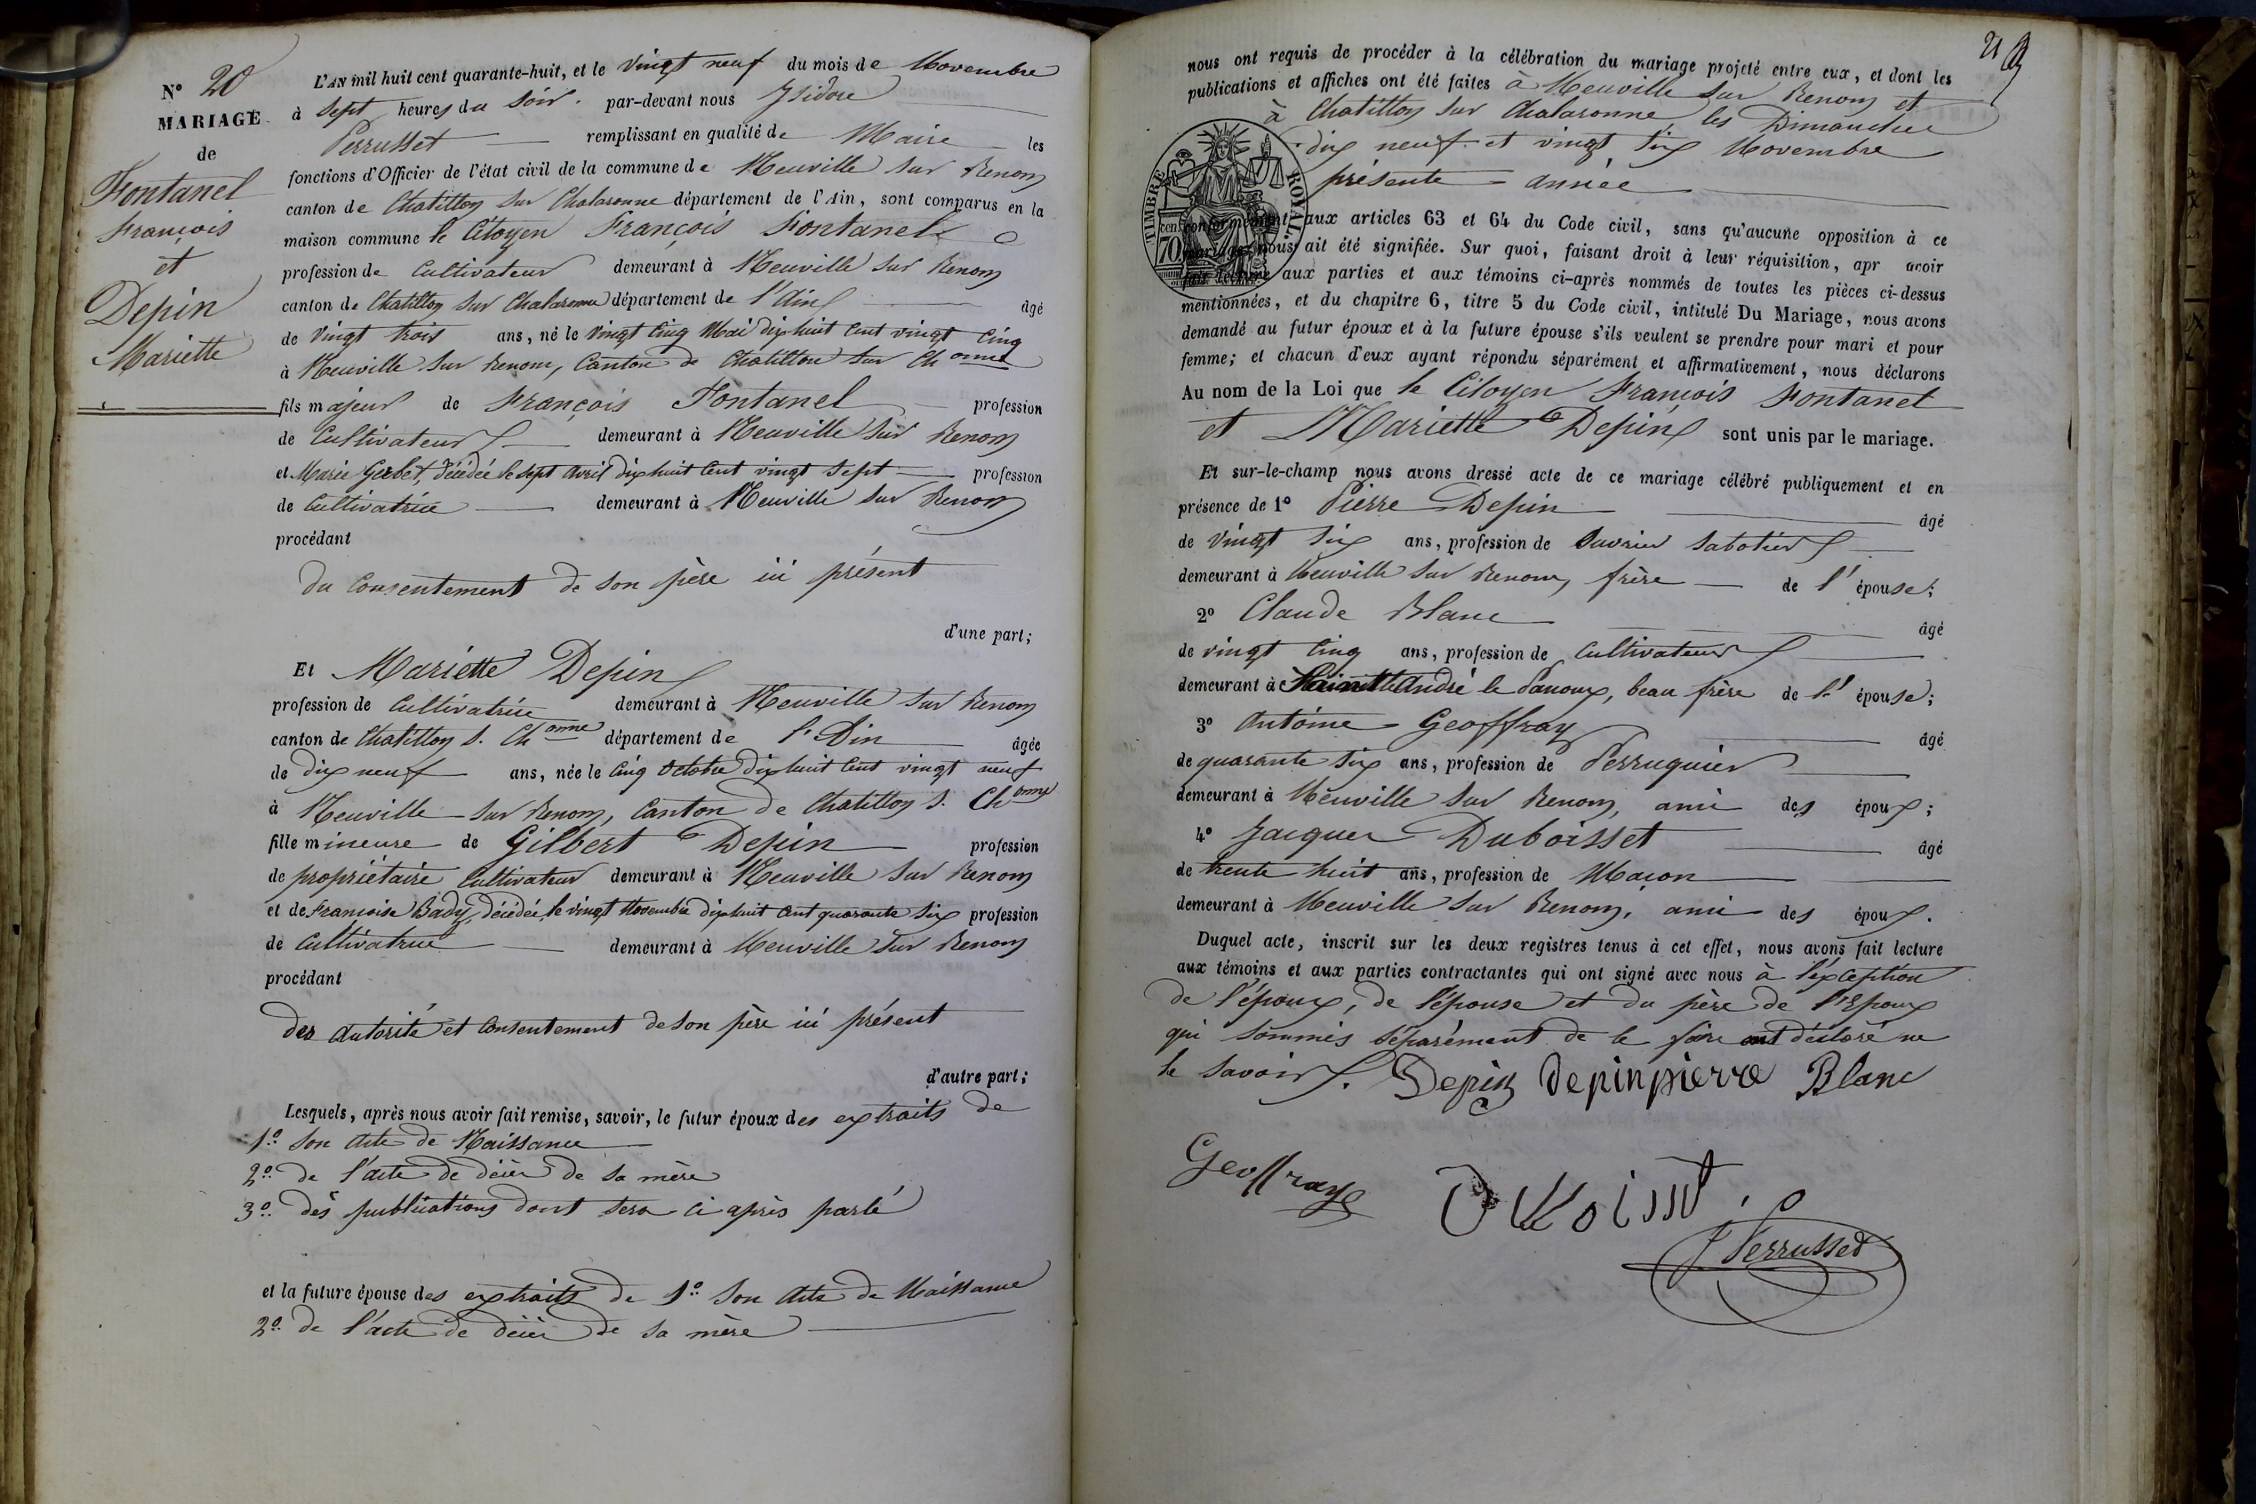 N° 20
MARIAGE
de
Fontanel
François
et
Depin
Mariette
L'AN mil huit cent quarante-huit, et le vingt neuf du mois de Novembre
à sept heures du soir. par-devant nous Isidore
Perrusset remplissant en qualité de Maire les
fonctions d'Officier de l'état civil de la commune de Neuville sur Renom
canton de Chatillon sur Chalaronne département de l'Ain, sont comparus en la
maison commune le Citoyen François Fontanel
profession de Cultivateur demeurant à Neuville sur Renom
canton de Chatillon sur Chalaronne département de l'Ain âgé
de vingt trois ans, né le vingt cinq Mai dix huit cent vingt cinq
à Neuville sur Renom, Canton de Chatillon sur Ch onne
fils majeur de François Fontanel profession
de Cultivateur demeurant à Neuville sur Renom
et Marie Gerbet, décédée le sept avril dix huit cent vingt sept profession
de Cultivatrice demeurant à Neuville sur Renom
procédant
du consentement de son père ici présent
d'une part;
Et Mariette Depin
profession de Cultivatrice demeurant à Neuville sur Renom
canton de Chatillon s. Ch onne département de l'Ain âgée
de dix neuf ans, née le cinq Octobre dix huit cent vingt neuf
à Neuville sur Renom, Canton de Chatillon s. Ch onne
fille mineure de Gilbert Depin profession
de propriétaire Cultivateur demeurant à Neuville sur Renom
et de Francoise Bady, décédée le vingt Novembre dix huit cent quarante six profession
de Cultivatrice demeurant à Neuville sur Renom
procédant
des autorité et consentement de son père ici présent
d'autre part;
Lesquels, après nous avoir fait remise, savoir, le futur époux des extraits de
1° son acte de Naissance
2° de l'acte de décès de sa mère
3° des publications dont sera ci après parlé
et la future épouse des extraits de 1° son acte de Naissance
2° de l'acte de décès de sa mère
21
nous ont requis de procéder à la célébration du mariage projeté entre eux, et dont les
publications et affiches ont été faites à Neuville sur Renom et
à Chatillon sur Chalaronne les Dimanches
dix neuf et vingt six Novembre
présente année
TIMBRE ROYAL
70 cen
conformément aux articles 63 et 64 du Code civil, sans qu'aucune opposition à ce
mariage nous ait été signifiée. Sur quoi, faisant droit à leur réquisition, apr avoir
fait lecture aux parties et aux témoins ci-après nommés de toutes les pièces ci-dessus
mentionnées, et du chapitre 6, titre 5 du Code civil, intitulé Du Mariage, nous avons
demandé au futur époux et à la future épouse s'ils veulent se prendre pour mari et pour
femme; et chacun d'eux ayant répondu séparément et affirmativement, nous déclarons
Au nom de la Loi que le Citoyen François Fontanel
et Mariette Depin sont unis par le mariage.
Et sur-le-champ nous avons dressé acte de ce mariage célébré publiquement et en
présence de 1° Pierre Depin âgé
de vingt six ans, profession de ouvrier sabotier
demeurant à Neuville sur Renom, frère de l'épouse;
2° Claude Blanc âgé
de vingt cinq ans, profession de cultivateur
demeurant à André le Panoux, beau frère de l'épouse;
3° Antoine Geoffray âgé
de quarante six ans, profession de Perruquier
demeurant à Neuville sur Renom, ami des époux;
4° Jacques Duboisset âgé
de trente huit ans, profession de Maçon
demeurant à Neuville sur Renom, ami des époux.
Duquel acte, inscrit sur les deux registres tenus à cet effet, nous avons fait lecture
aux témoins et aux parties contractantes qui ont signé avec nous à l'exception
de l'époux, de l'épouse et du père de l'Epoux
qui sommés séparément de le faire ont déclaré ne
le savoir. Depin depinpierre Blanc
Geoffray
Perrusset